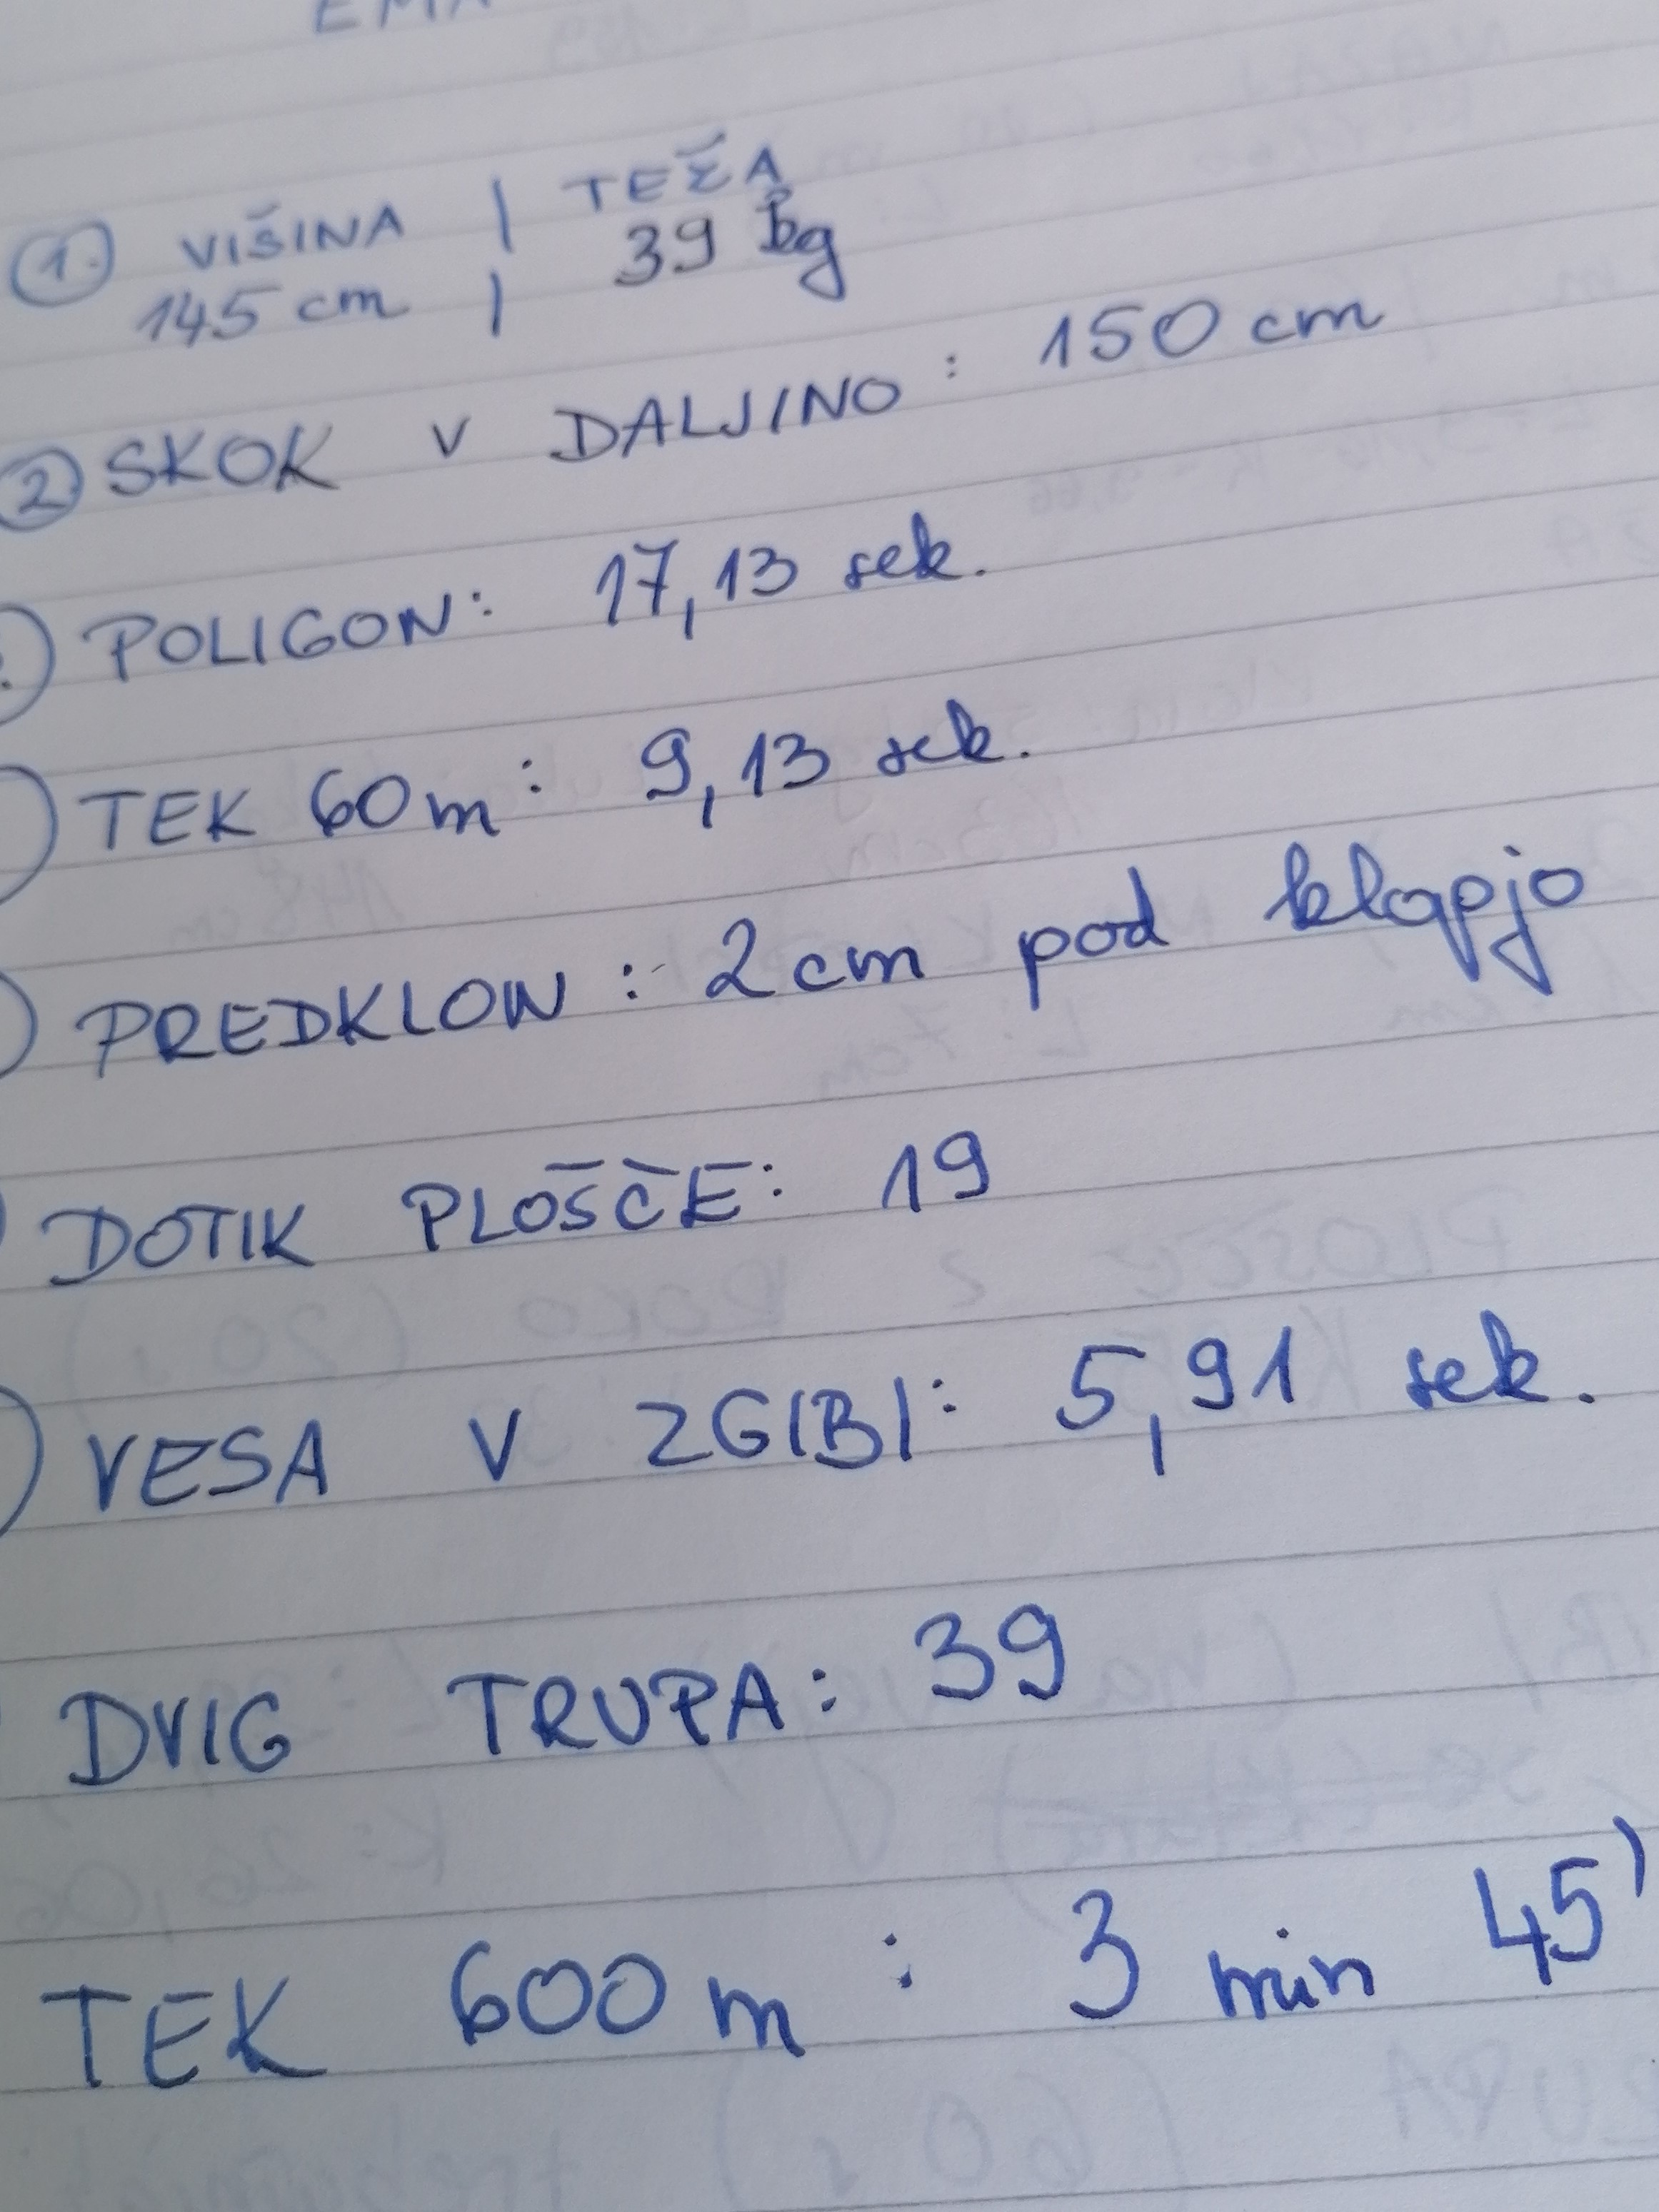 EMA
1. VIŠINA | TEŽA
145 cm | 39 kg
2. SKOK V DALJINO: 150 cm
POLIGON: 17,13 sek.
TEK 60m: 9,13 sek.
PREDKLON: 2cm pod klopjo
DOTIK PLOŠČE: 19
VESA V ZGIBI: 5,91 sek.
DVIG TRUPA: 39
TEK 600 m: 3 min 45'